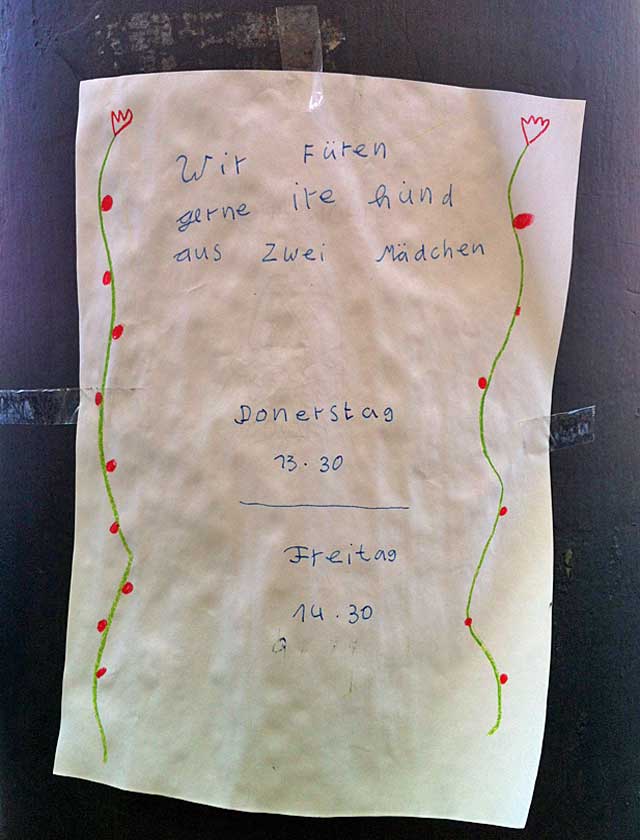 Wir Füren
gerne ire hünd
aus zwei Mädchen
Donerstag
13.30
Freitag
14.30